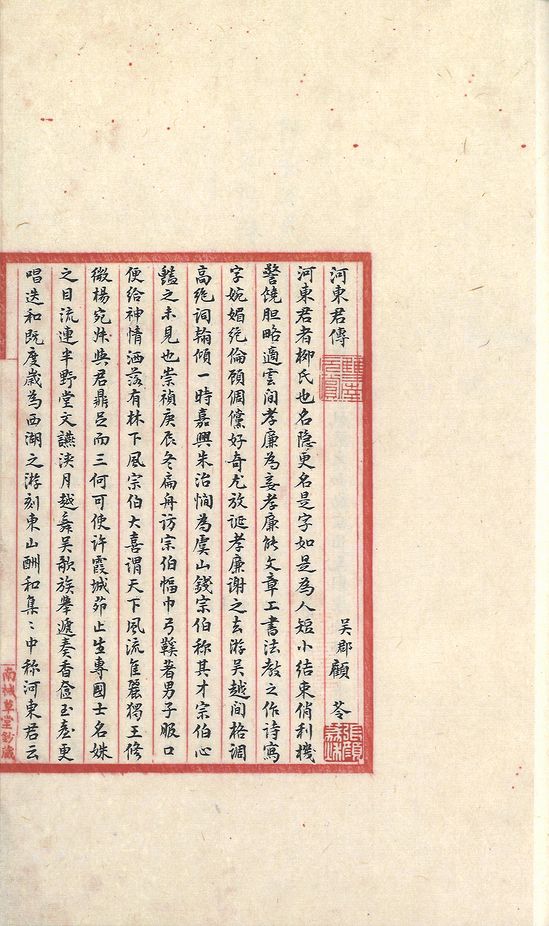 河東君傳
吳郡顧 苓
河東君者柳氏也名隐更名是字如是為人短小結束俏利機
警饒胆略適雲間孝廉為妾孝廉能文章工書法教之作詩寫
字婉媚绝倫顾倜儻好奇尤放诞孝廉謝之去游吴越間格調
高绝詞翰傾一時嘉興朱治憪為虞山錢宗伯称其才宗伯心
豔之未見也崇禎庚辰冬扁舟訪宗伯幅巾弓鞵著男子服口
便给神情洒落有林下風宗伯大喜謂天下風流佳麗獨王修
微楊宛叔與君鼎足而三何可使许霞城茆止生專國士名姝
之目流連半野堂文讌浃月越舞吴歌族舉遞奏香奩玉臺更
唱迭和既度歲為西湖之游刻東山酬和集〻中称河東君云
南城草堂鈔藏